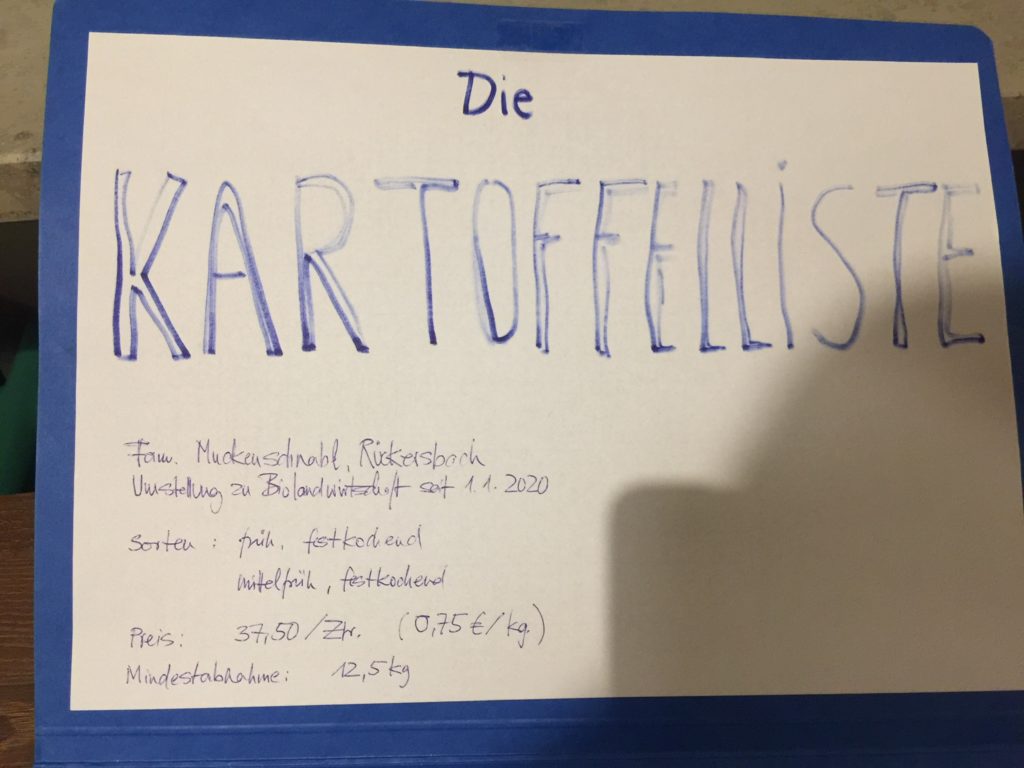 Die
KARTOFFELLiSTE
Fam. Muckenschnabl, Rückersbach
Umstellung zu Biolandwirtschaft seit 1.1.2020
Sorten: früh, festkochend
mittelfrüh, festkochend
Preis: 37,50/Ztr. (0,75€/kg)
Mindestabnahme: 12,5kg